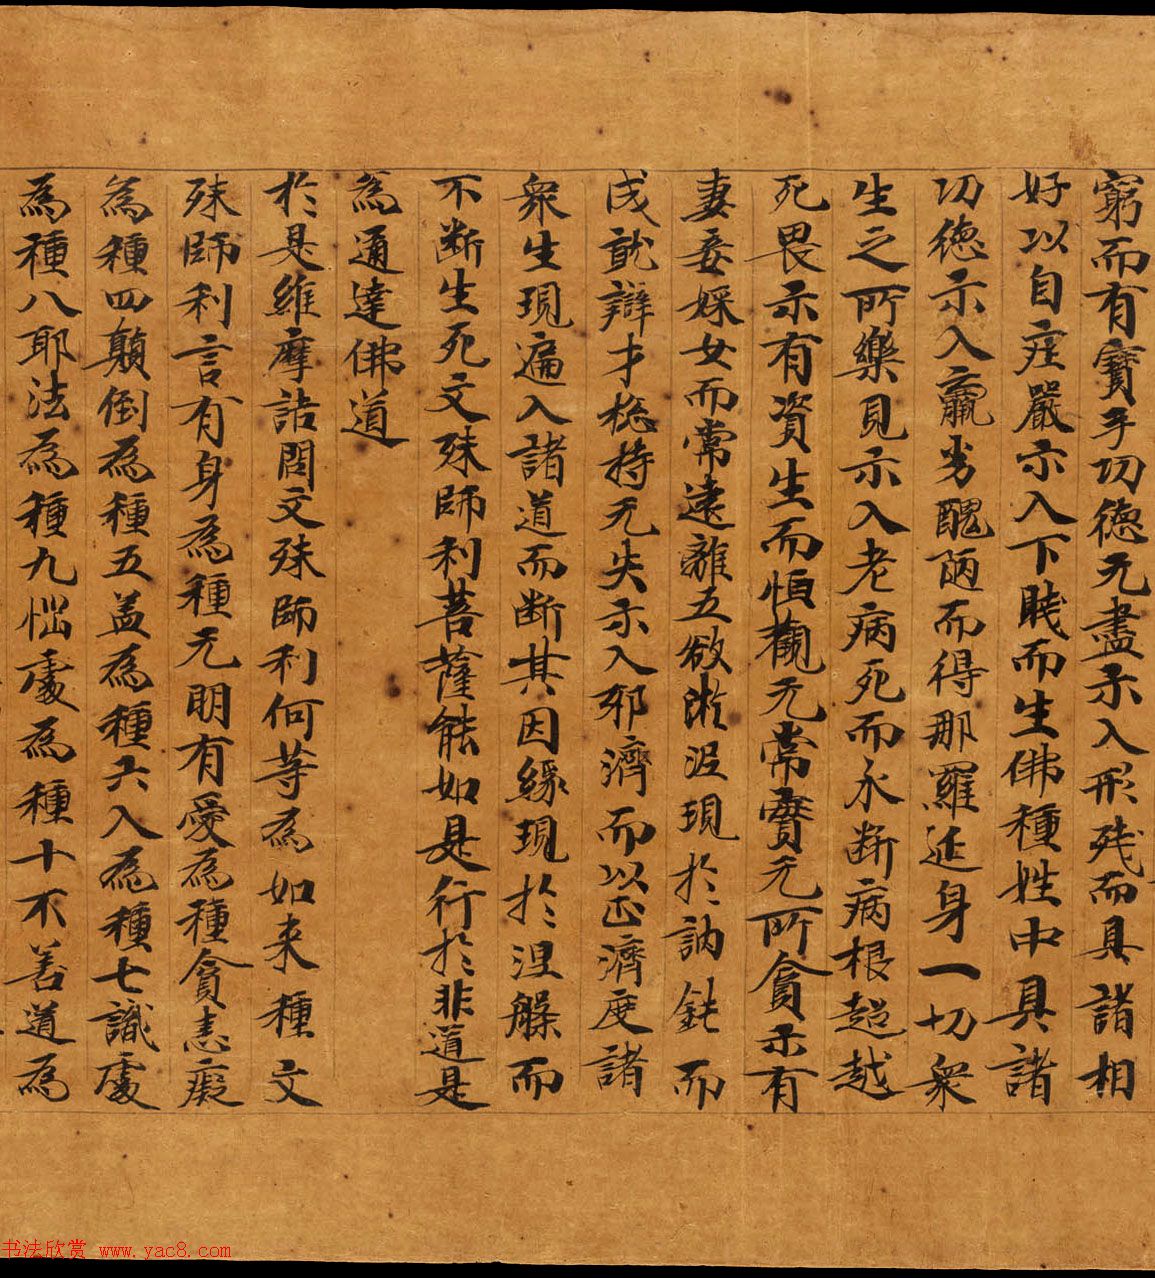 窮而有寶手功德无盡示入形残而具諸相
好以自莊嚴示入下賤而生佛種姓中具諸
功德示入羸劣醜陋而得那羅延身一切衆
生之所樂見示入老病死而永断病根超越
死畏示有資生而恒觀无常實无所貪示有
妻妾婇女而常遠離五欲淤泥現於訥鈍而
成就辯才捴持无失示入邪濟而以正濟度諸
衆生現遍入諸道而断其因緣現於涅槃而
不断生死文殊師利菩薩能如是行於非道是
為通達佛道
於是維摩詰問文殊師利何等為如来種文
殊師利言有身為種无明有愛為種貪恚癡
為種四顛倒為種五盖為種六入為種七識處
為種八耶法為種九惱處為種十不善道為
书法欣赏 www.yac8.com